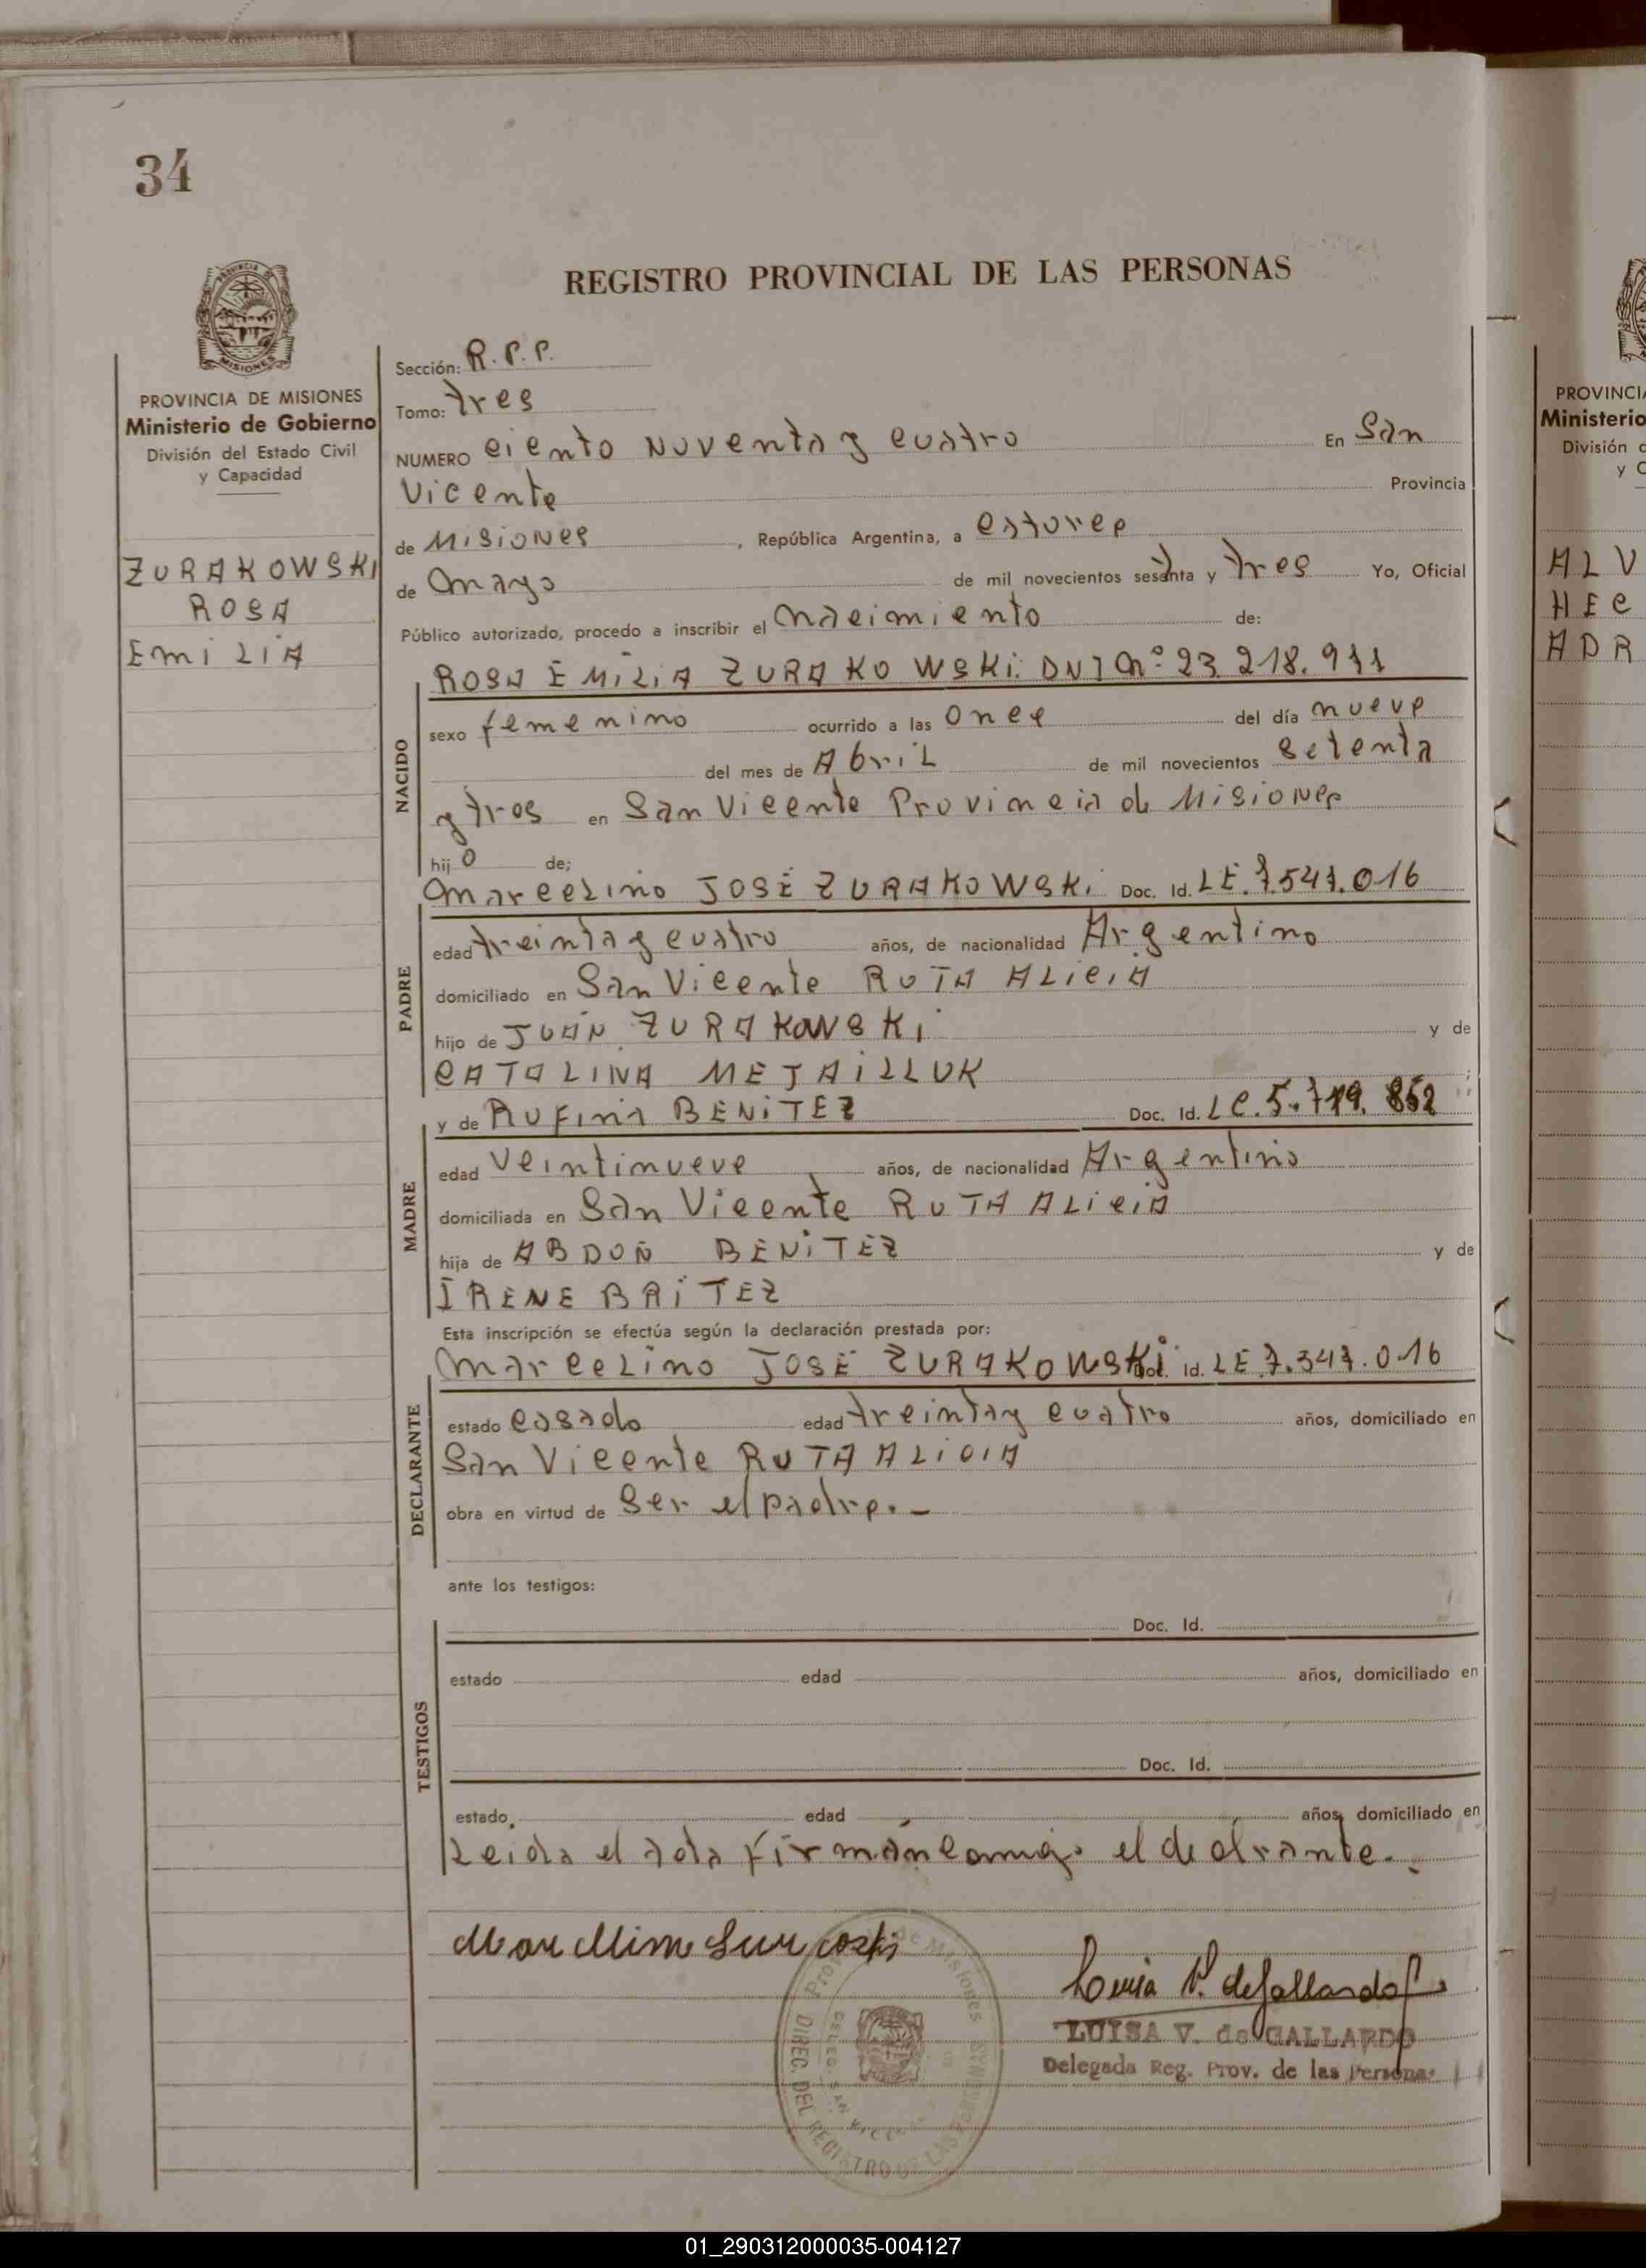 34
REGISTRO PROVINCIAL DE LAS PERSONAS
PROVINCIA DE MISIONES
Ministerio de Gobierno
División del Estado Civil
y Capacidad
ZURAKOWSKI
ROSA
EMILIA
Sección: R.P.P.
Tomo: tres
NUMERO ciento noventa y cuatro En San
Vicente Provincia
de Misiones, República Argentina, a catorce
de Mayo de mil novecientos sesenta y tres Yo, Oficial
Público autorizado, procedo a inscribir el nacimiento de:
ROSA EMILIA ZURAKOWSKI. DNI Nº 23.218.911
NACIDO
sexo femenino ocurrido a las once del día nueve
del mes de Abril de mil novecientos setenta
y tres en San Vicente Provincia de Misiones
hijo de;
Marcelino JOSÉ ZURAKOWSKI Doc. Id. LE.7.547.016
PADRE
edad treinta y cuatro años, de nacionalidad Argentino
domiciliado en San Vicente RUTA ALICIA
hijo de JUAN ZURAKOWSKI y de
CATALINA MEJAILLUK;
y de Rufina BENITEZ Doc. Id. LC.5.719.852
MADRE
edad veintinueve años, de nacionalidad Argentina
domiciliada en San Vicente RUTA ALICIA
hija de ABDON BENITEZ y de
IRENE BRITEZ
Esta inscripción se efectúa según la declaración prestada por:
Marcelino JOSÉ ZURAKOWSKI Doc. Id. LE.7.547.016
DECLARANTE
estado casado edad treinta y cuatro años, domiciliado en
San Vicente RUTA ALICIA
obra en virtud de ser el padre.-
ante los testigos:
TESTIGOS
Doc. Id.
estado edad años, domiciliado en
Doc. Id.
estado, edad años, domiciliado en
Leida el acta firman conmigo el declarante.
Luisa V. de Gallardo
LUISA V. de GALLARDO
Delegada Reg. Prov. de las Personas
PROVINCIA
Ministerio
División
y C
ALV
HEC
ADR
01_290312000035-004127